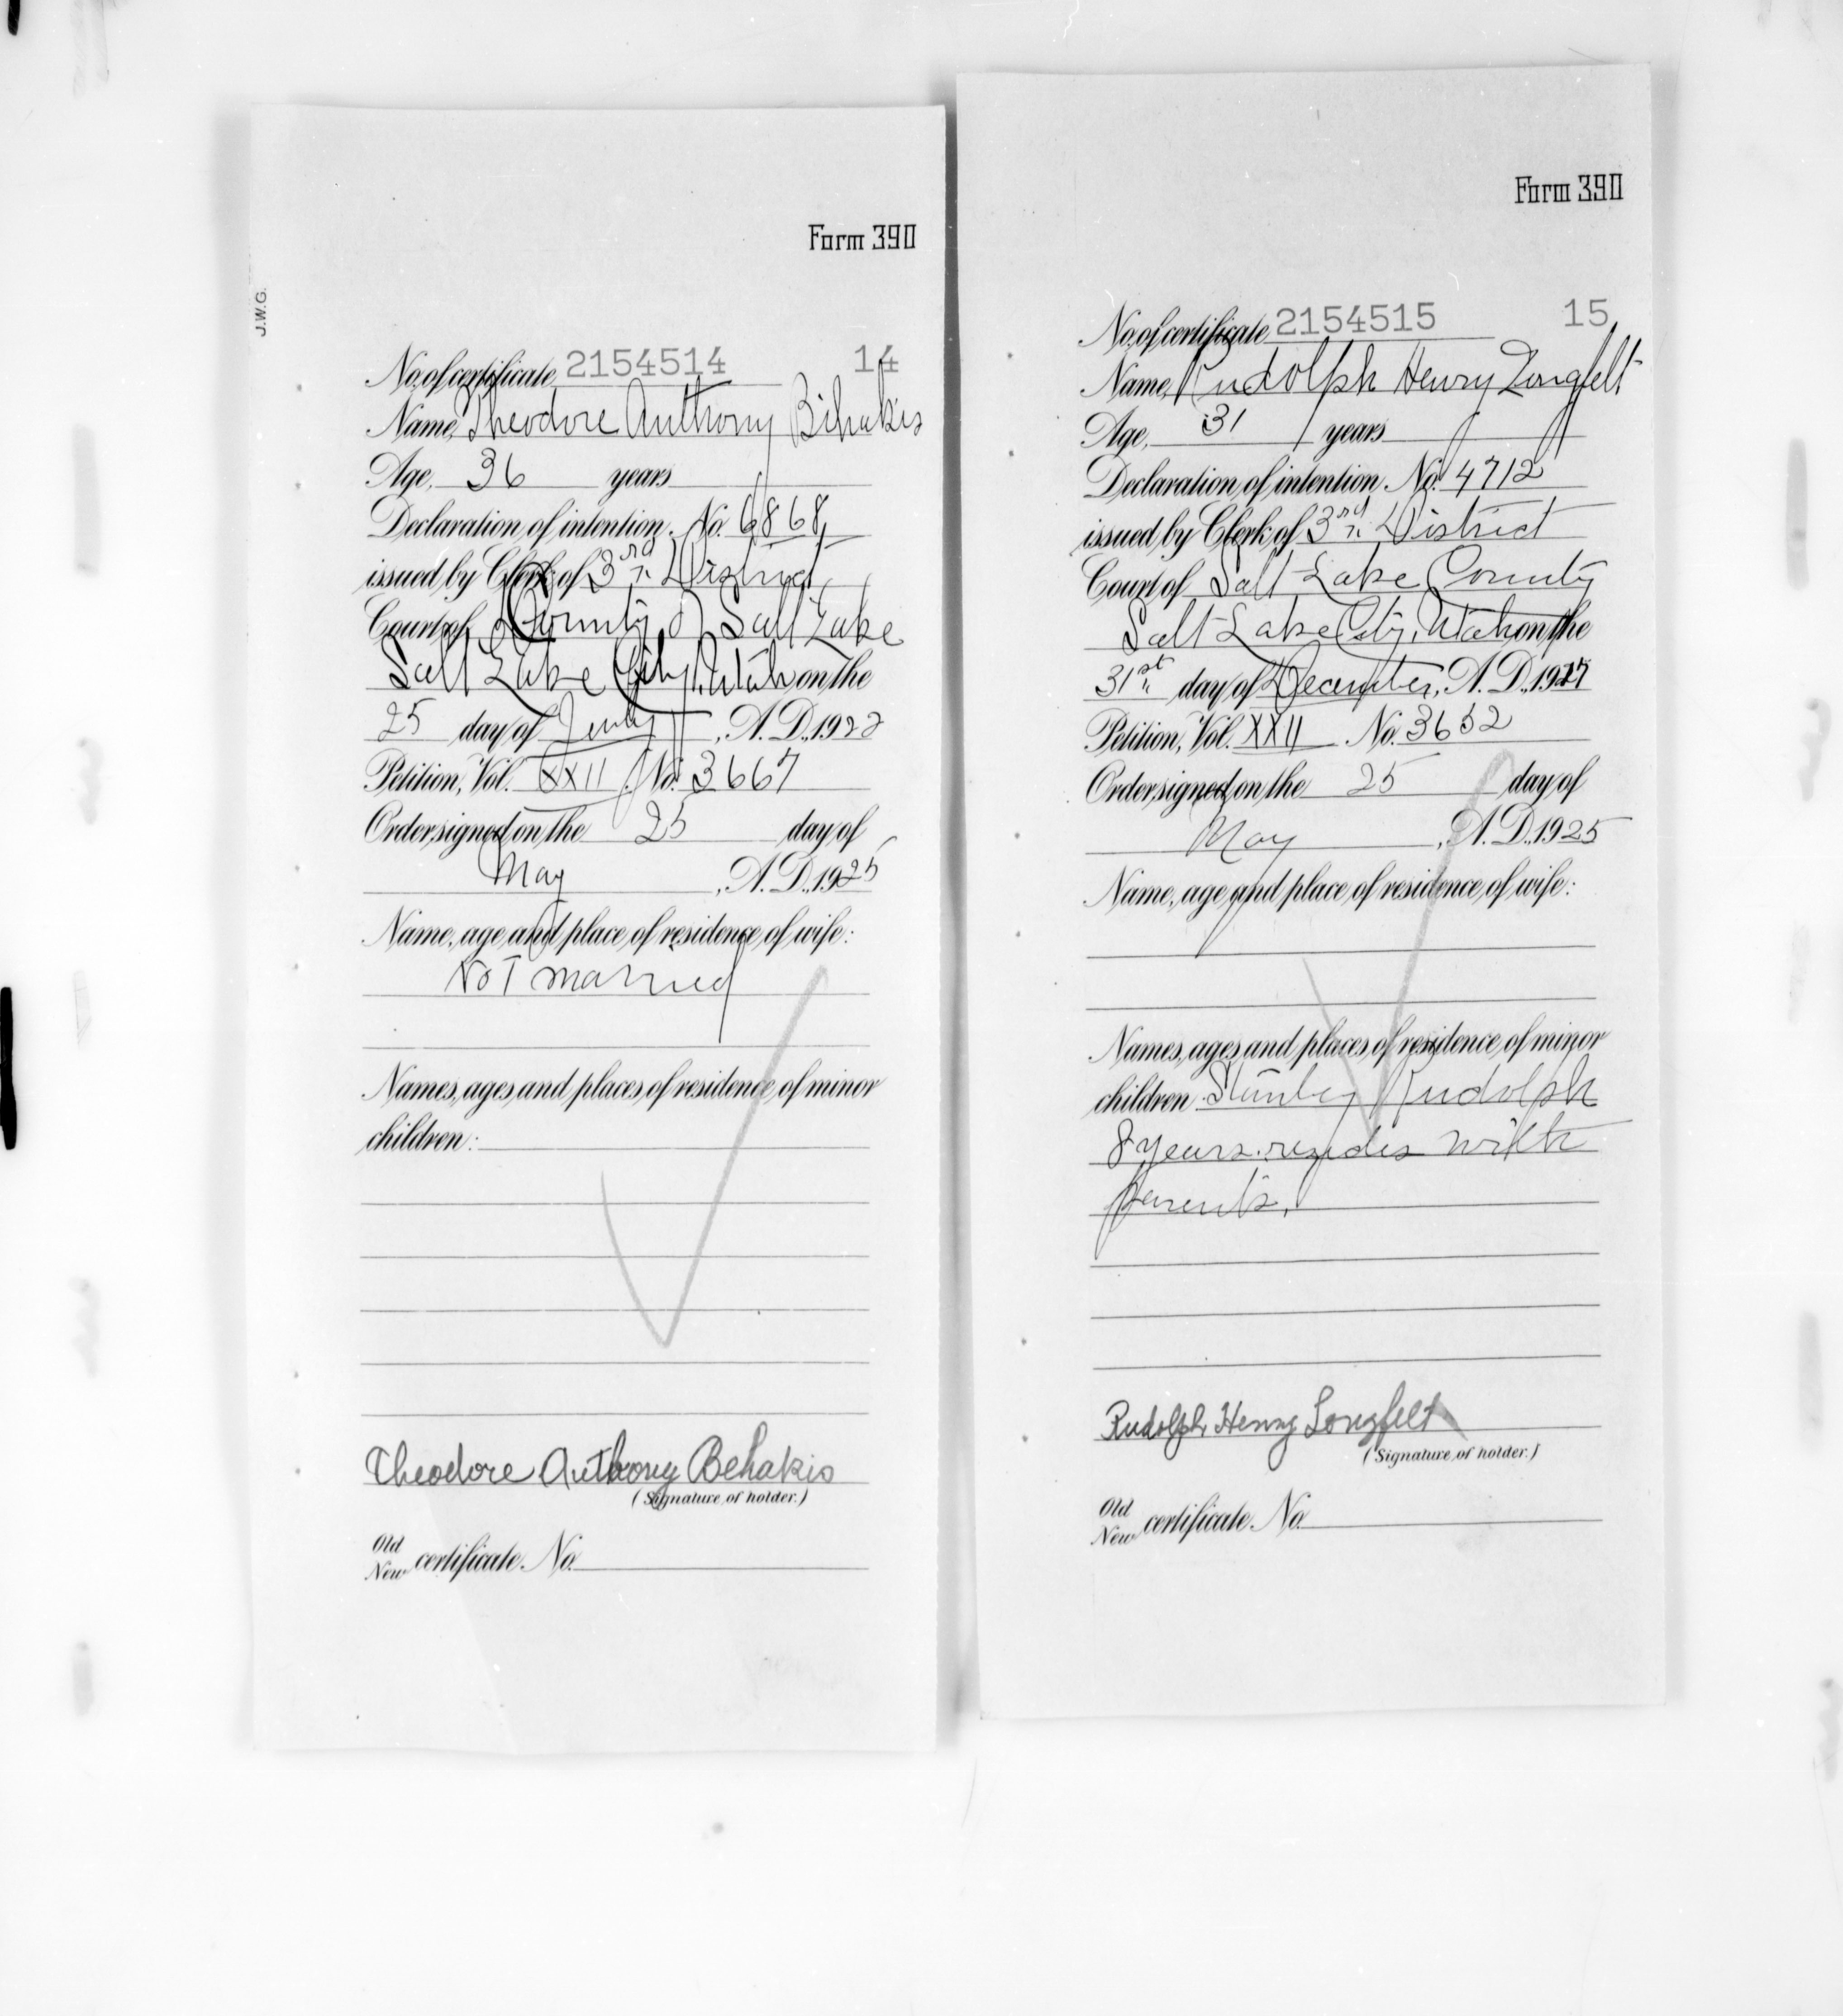 J.W.G.
Form 390
No. of certificate 2154514 14
Name, Theodore Anthony Bihakis
Age, 36 years
Declaration of intention, No. 6868,
issued by Clerk of 3rd District
Court of County of Salt Lake
Salt Lake City, Utah on the
25 day of , A. D., 1922
Petition, Vol. XXII No. 3667
Order signed on the 25 day of
May , A. D., 1925
Name, age and place of residence of wife:
Not married
Names, ages and places of residence of minor
children:
Theodore Anthony Behakis
(Signature of holder.)
Old
New certificate No.
Form 390
No. of certificate 2154515 15
Name, Rudolph Henry Longfelt
Age, 31 years
Declaration of intention, No. 4712
issued by Clerk of 3rd District
Court of Salt Lake County
Salt Lake City, Utah on the
31st day of December, A. D., 19
Petition, Vol. XXII No. 3652
Order signed on the 25 day of
May , A. D., 1925
Name, age and place of residence of wife:
Names, ages and places of residence of minor
children: Stanley Rudolph
8 years. resides with
parents.
Rudolph Henry Longfelt
(Signature of holder.)
Old
New certificate No.